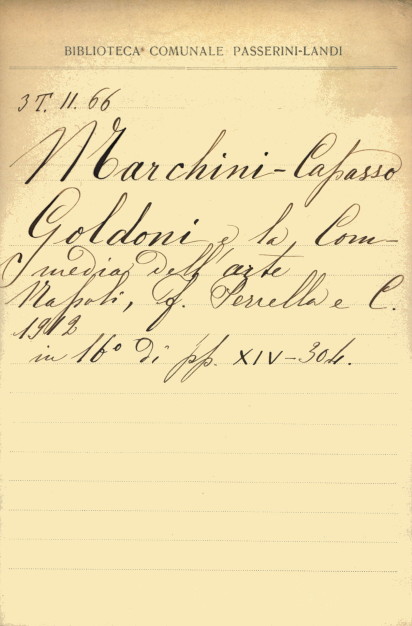 BIBLIOTECA COMUNALE PASSERINI-LANDI
3T. 11. 66
Marchini-Capasso
Goldoni e la Com-
media dell'arte
Napoli, f. Perrella e C.
1912
in 16° di pp. XIV-304.